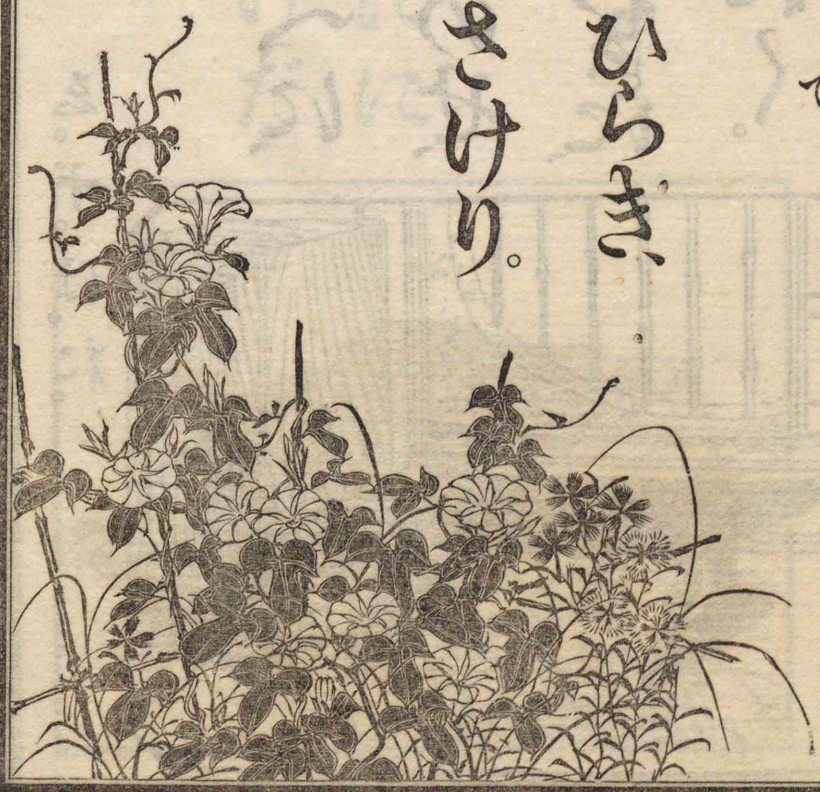 ひらぎ、
さけり。